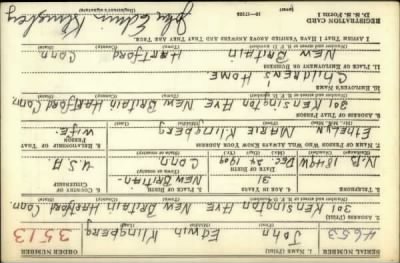 REGISTRATION CARD
D. S. S. Form 1
SERIAL NUMBER
1. NAME (Print)
ORDER NUMBER
4653
John Edwin Klingberg
3513
2. ADDRESS (Print)
301 Kensington Ave New Britain Hartford Conn.
3. TELEPHONE
4. AGE IN YEARS
5. PLACE OF BIRTH
6. COUNTRY OF CITIZENSHIP
31
New Britain
N.B. 1849W
DATE OF BIRTH
Dec. 24 1909
Conn
U.S.A.
7. NAME OF PERSON WHO WILL ALWAYS KNOW YOUR ADDRESS
8. RELATIONSHIP OF THAT PERSON
Marie Klingberg
Wife
9. ADDRESS OF THAT PERSON
301 Kensington Ave New Britain Hartford Conn.
10. EMPLOYER'S NAME
Children's Home
11. PLACE OF EMPLOYMENT OR BUSINESS
New Britain Hartford Conn
I AFFIRM THAT I HAVE VERIFIED ABOVE ANSWERS AND THAT THEY ARE TRUE.
John Edwin Klingberg
(Registrant's signature)